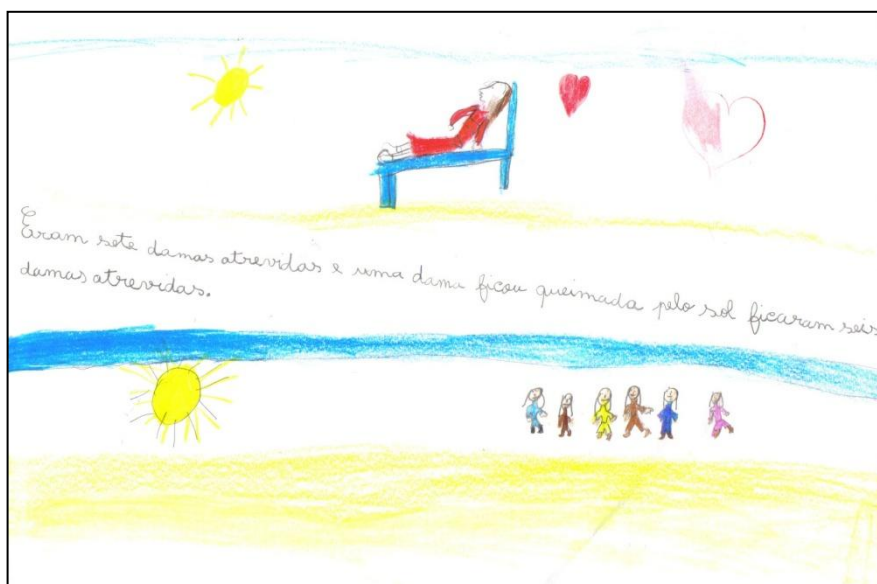 Eram sete damas atrevidas e uma dama ficou queimada pelo sol ficaram seis
damas atrevidas.